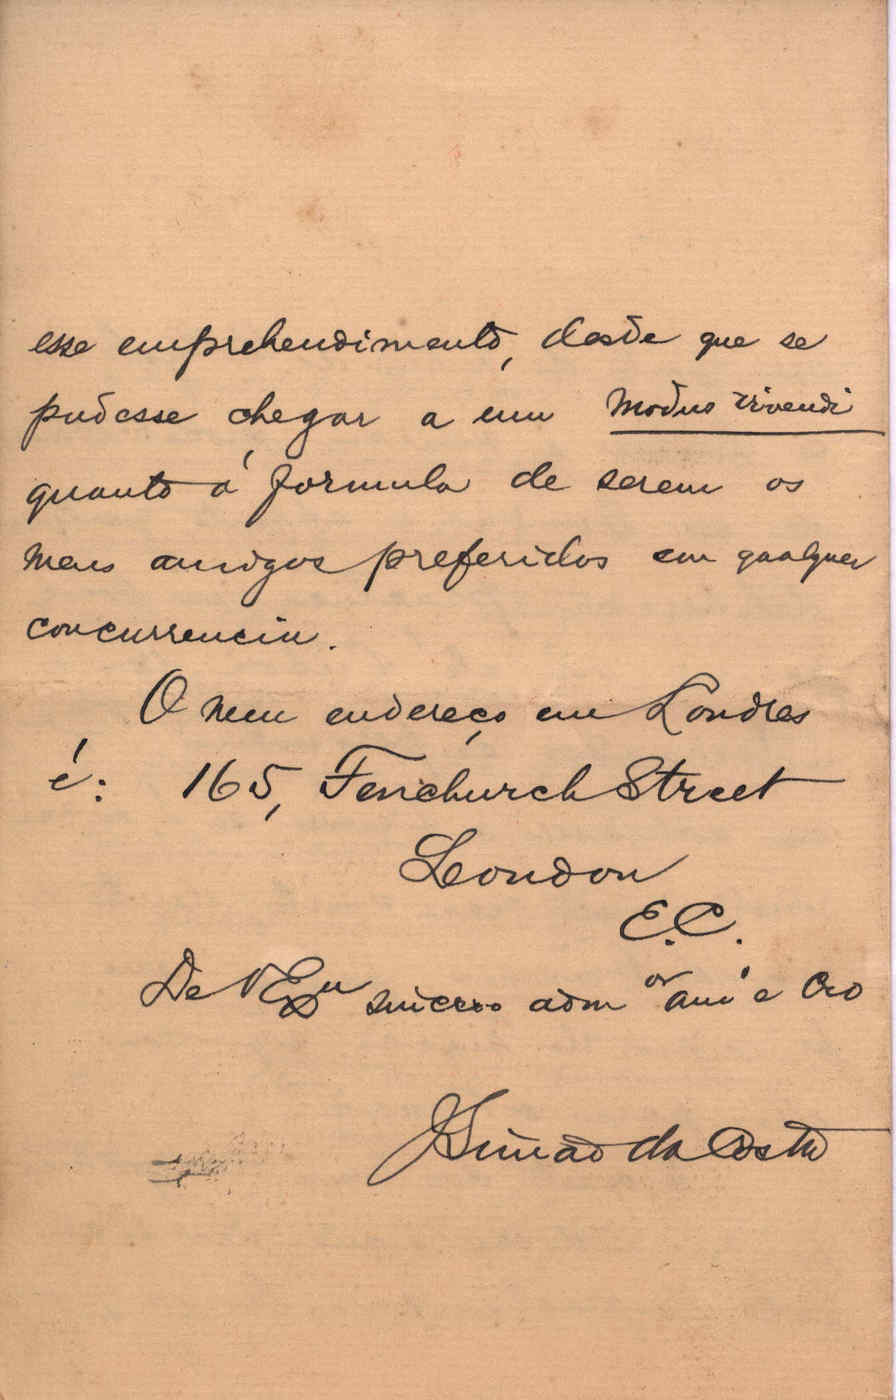 esse emprehendimento, desde que se
pudesse chegar a um modus vivendi
quanto á formula de serem os
meus amigos preferidos em qualquer
concurrencia.
O meu endereço em Londres
é: 165, Fenchurch Street
London
E.C.
De V Exa sincero admor amo e Cro
J Simão da Costa